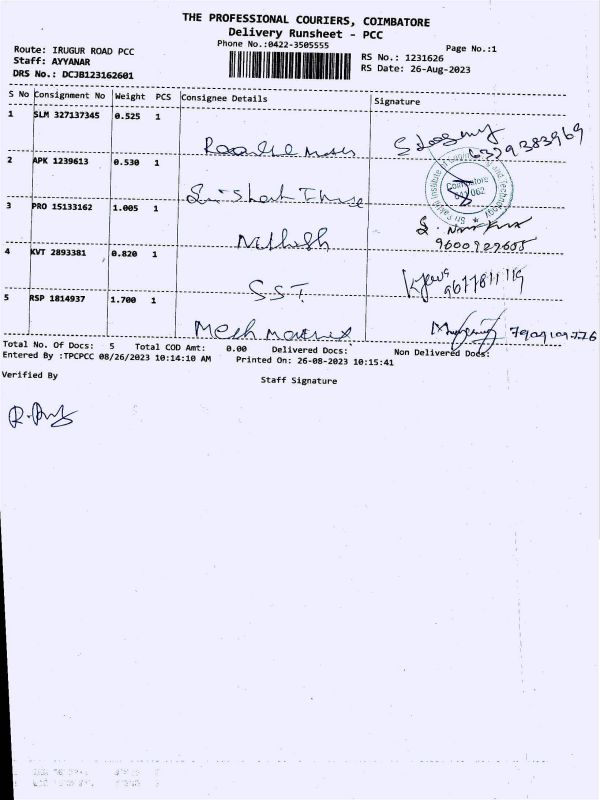 THE PROFESSIONAL COURIERS, COIMBATORE
Delivery Runsheet - PCC
Phone No.:0422-3505555
Page No.:1
Route: IRUGUR ROAD PCC
Staff: AYYANAR
DRS No.: DCJB123162601
RS No.: 1231626
RS Date: 26-Aug-2023
S No Consignment No Weight PCS Consignee Details Signature
1 SLM 327137345 0.525 1
6379383969
2 APK 1239613 0.530 1
Coimbatore
641 062
3 PRO 15133162 1.005 1 Nithish
9600929605
4 KVT 2893381 0.820 1 SST
9677811119
5 RSP 1814937 1.700 1 Mech
Total No. Of Docs: 5 Total COD Amt: 0.00 Delivered Docs: Non Delivered Docs:
Entered By :TPCPCC 08/26/2023 10:14:10 AM Printed On: 26-08-2023 10:15:41
Verified By
Staff Signature